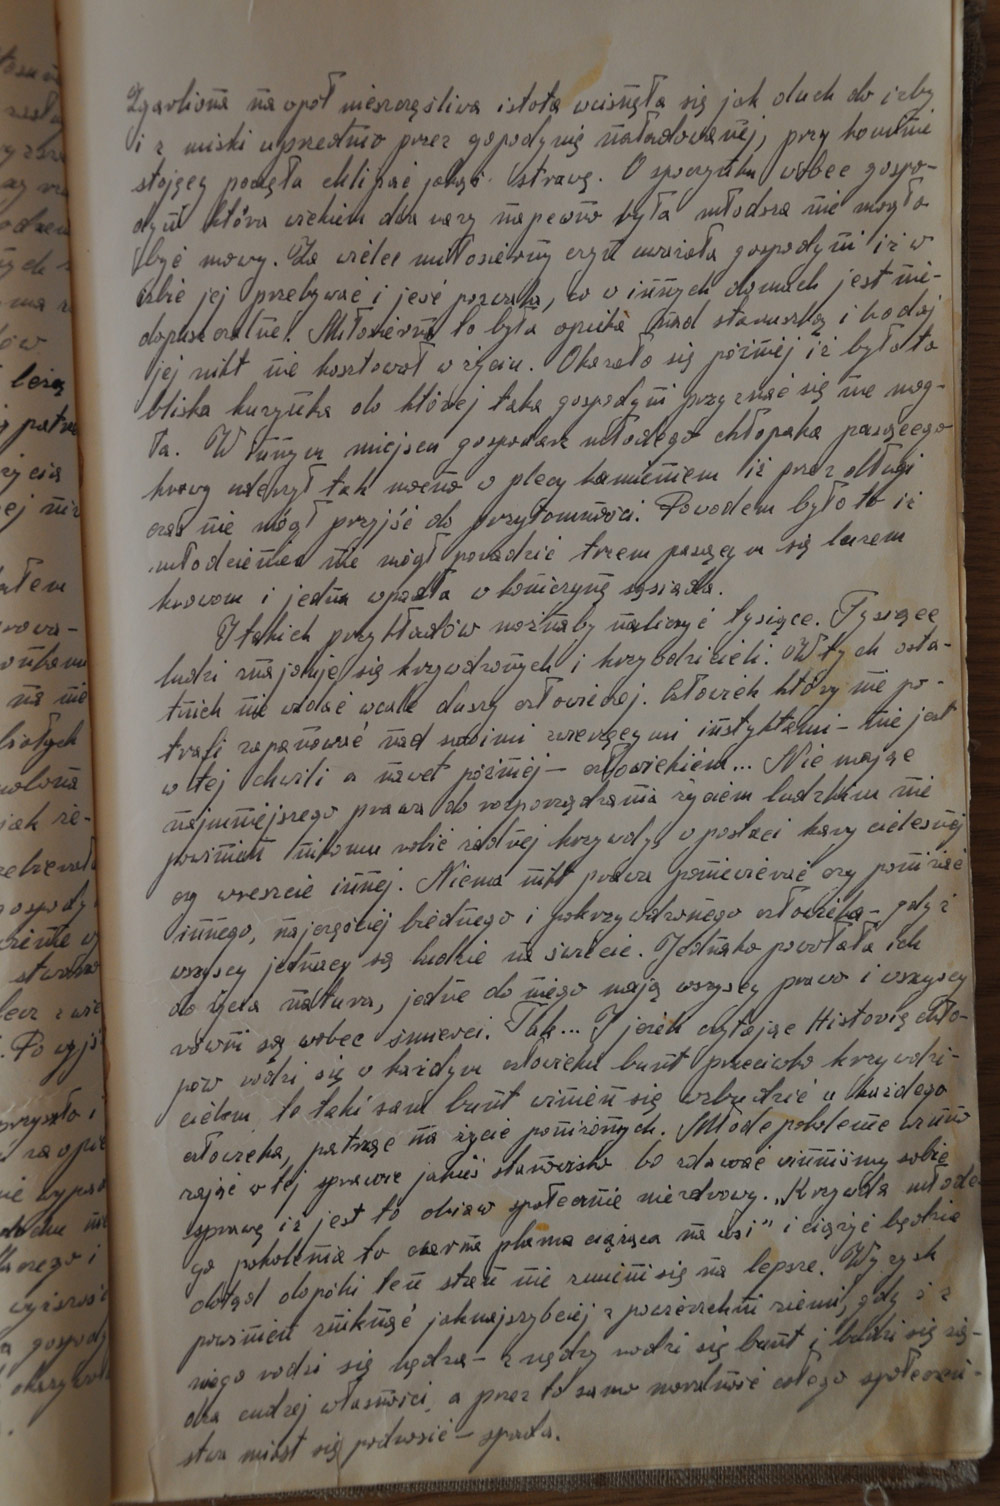 Zgarbiona na wpół nieszczęśliwa istota wcisnęła się jak duch do izby
i z miski uprzednio przez gospodynię naładowanej, przy kominie
stojącej poczęła chlipać jakąś strawę. O spoczynku wobec gospo-
dyni która wiekiem dwa razy napewno była młodsza nie mogło
być mowy. Za wielce miłosierny czyn uważała gospodyni iż w
izbie jej przebywać i jeść pozwala, co w innych domach jest nie-
dopuszczalne. Miłosierna to była opieka nad staruszką i bodaj
jej nikt nie kosztował w życiu. Okazało się później iż była to
bliska kuzynka do której taka gospodyni przyznać się nie mog-
ła. W innym miejscu gospodarz młodego chłopaka pasącego
krowy uderzył tak mocno w plecy kamieniem iż przez długi
czas nie mógł przyjść do przytomności. Powodem było to iż
młodzieniec nie mógł poradzić trzem pasącym się luzem
krowom i jedna wpadła w koniczynę sąsiada.
I takich przykładów możnaby naliczyć tysiące. Tysiące
ludzi znajduje się krzywdzonych i krzywdzicieli. W tych osta-
tnich nie widać wcale duszy człowieczej. Człowiek który nie po-
trafi zapanować nad swoimi zwierzęcymi instyktami - nie jest
w tej chwili a nawet później - człowiekiem... Nie mając
najmniejszego prawa do rozporządzania życiem ludzkim nie
powinien nikomu robić żadnej krzywdy w postaci kary cielesnej
czy wreszcie innej. Niema nikt prawa poniewierać czy poniżać
innego, najczęściej biednego i pokrzywdzonego człowieka - gdyż
wszyscy jednacy są ludzie na świecie. Jednako powołała ich
do życia natura, jedne do niego mają wszyscy prawo i wszyscy
równi są wobec śmierci. Tak... I jeżeli czytając Historię chło-
pów rodzi się w każdym człowieku bunt przeciwko krzywdzi-
cielom to taki sam bunt winien się wzbudzić u każdego
człowieka, patrząc na życie poniżonych. Młode pokolenie winno
zająć w tej sprawie jakieś stanowisko bo zdawać winniśmy sobie
sprawę iż jest to objaw społecznie niezdrowy. „Krzywda młode-
go pokolenia to czarna plama ciążąca na wsi" i ciążyć będzie
dotąd dopóki ten stan nie zmieni się na lepsze. Wyzysk
powinien zniknąć jaknajszybciej z powierzchni ziemi, gdyż z
niego rodzi się nędza - z nędzy rodzi się bunt i budzi się żą-
dza cudzej własności, a przez to samo moralność całego społeczeń-
stwa miast się podnosić - spada.